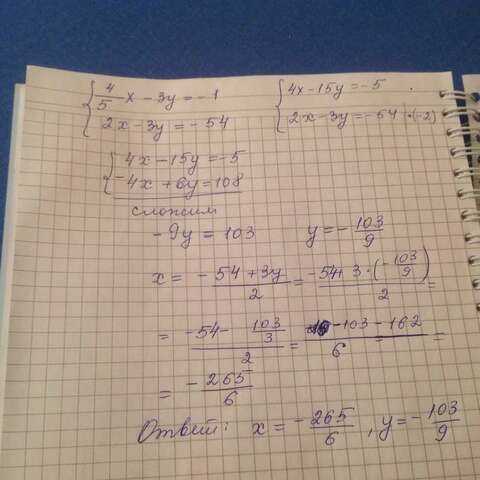 { 4/5 x - 3y = -1
2x - 3y = -54
{ 4x - 15y = -5
2x - 3y = -54 | ·(-2)
{ 4x - 15y = -5
-4x + 6y = 108
сложим
-9y = 103 y = -103/9
x = (-54 + 3y)/2 = (-54 + 3·(-103/9))/2 =
= (-54 - 103/3)/2 = (-103 - 162)/6 = =
= -265/6
Ответ: x = -265/6, y = -103/9